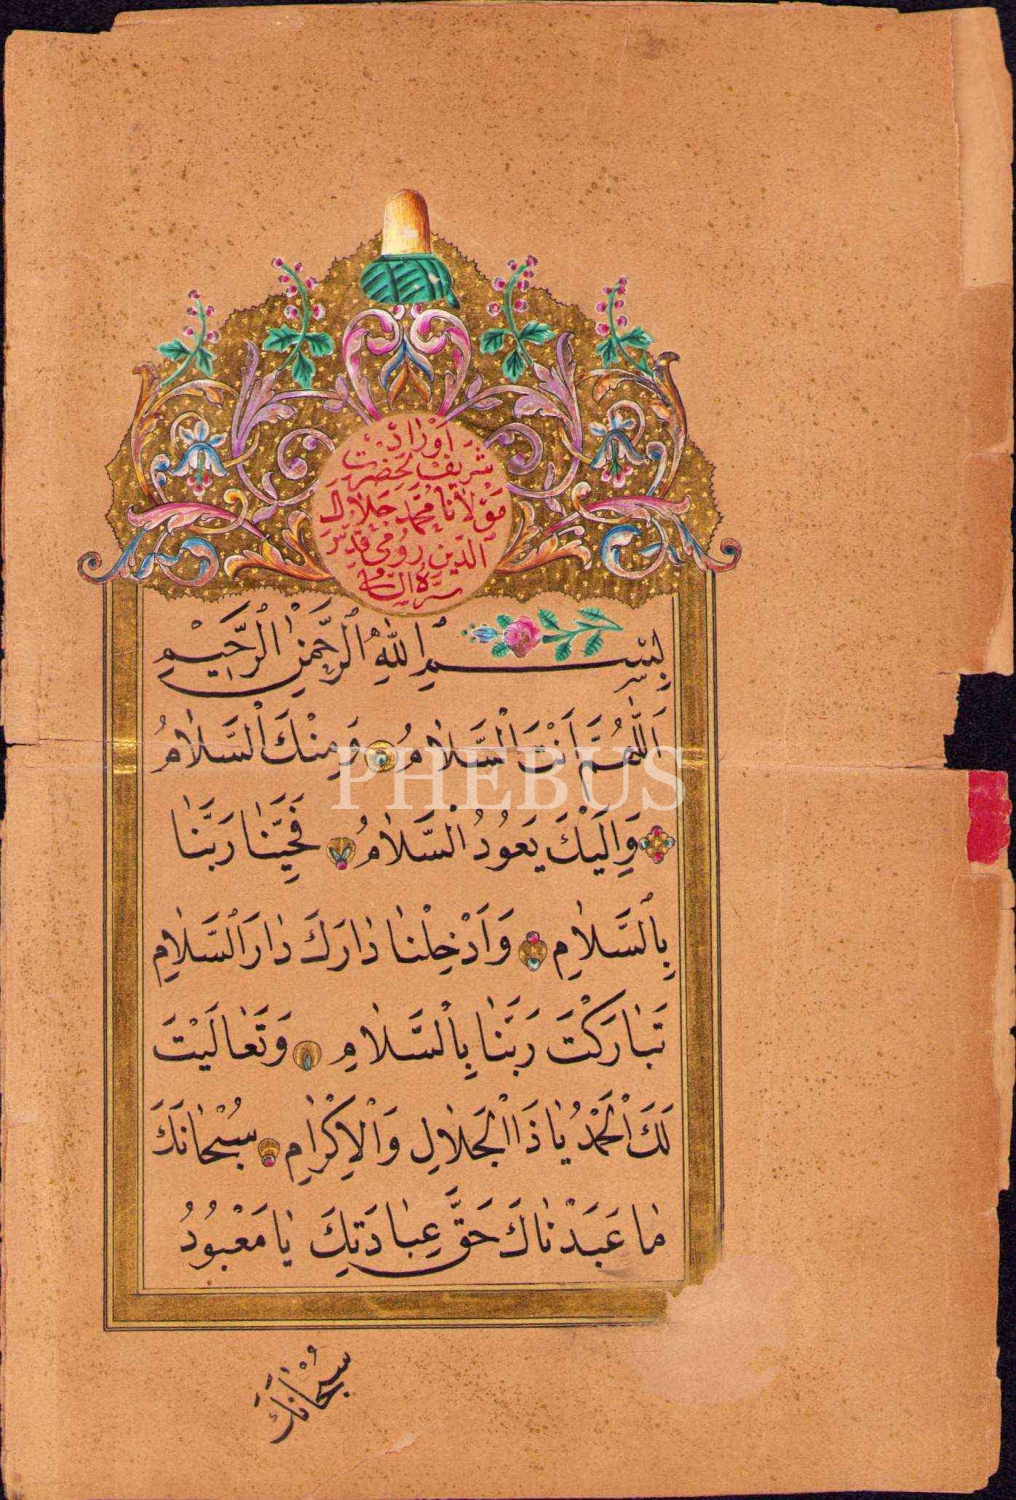 اَوْرَادِ
شَرِيفِ لِحَضْرَتِ
مَوْلَانَا مُحَمَّد جَلَالِ
الدِّينِ رُومِى قُدِّسَ
سِرُّهُ السَّامِى
بِسْمِ اللّٰهِ الرَّحْمٰنِ الرَّحِيمِ
اَللّٰهُمَّ اَنْتَ السَّلَامُ وَمِنْكَ السَّلَامُ
PHEBUS
وَاِلَيْكَ يَعُودُ السَّلَامُ فَحَيِّنَا رَبَّنَا
بِالسَّلَامِ وَاَدْخِلْنَا دَارَكَ دَارَ السَّلَامِ
تَبَارَكْتَ رَبَّنَا بِالسَّلَامِ وَتَعَالَيْتَ
لَكَ الْحَمْدُ يَا ذَا الْجَلَالِ وَالْاِكْرَامِ سُبْحَانَكَ
مَا عَبَدْنَاكَ حَقَّ عِبَادَتِكَ يَا مَعْبُودُ
سُبْحَانَكَ